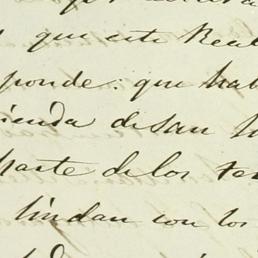 que este Real
ponde: que hab
ienda de san
parte de los te
lindan con los